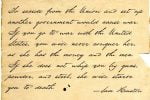 To secede from the Union and set up
another government would cause war.
If you go to war with the United
States, you will never conquer her,
as she has the money and the men.
If she does not whip you by guns,
powder, and steel, she will starve
you to death.
— Sam Houston